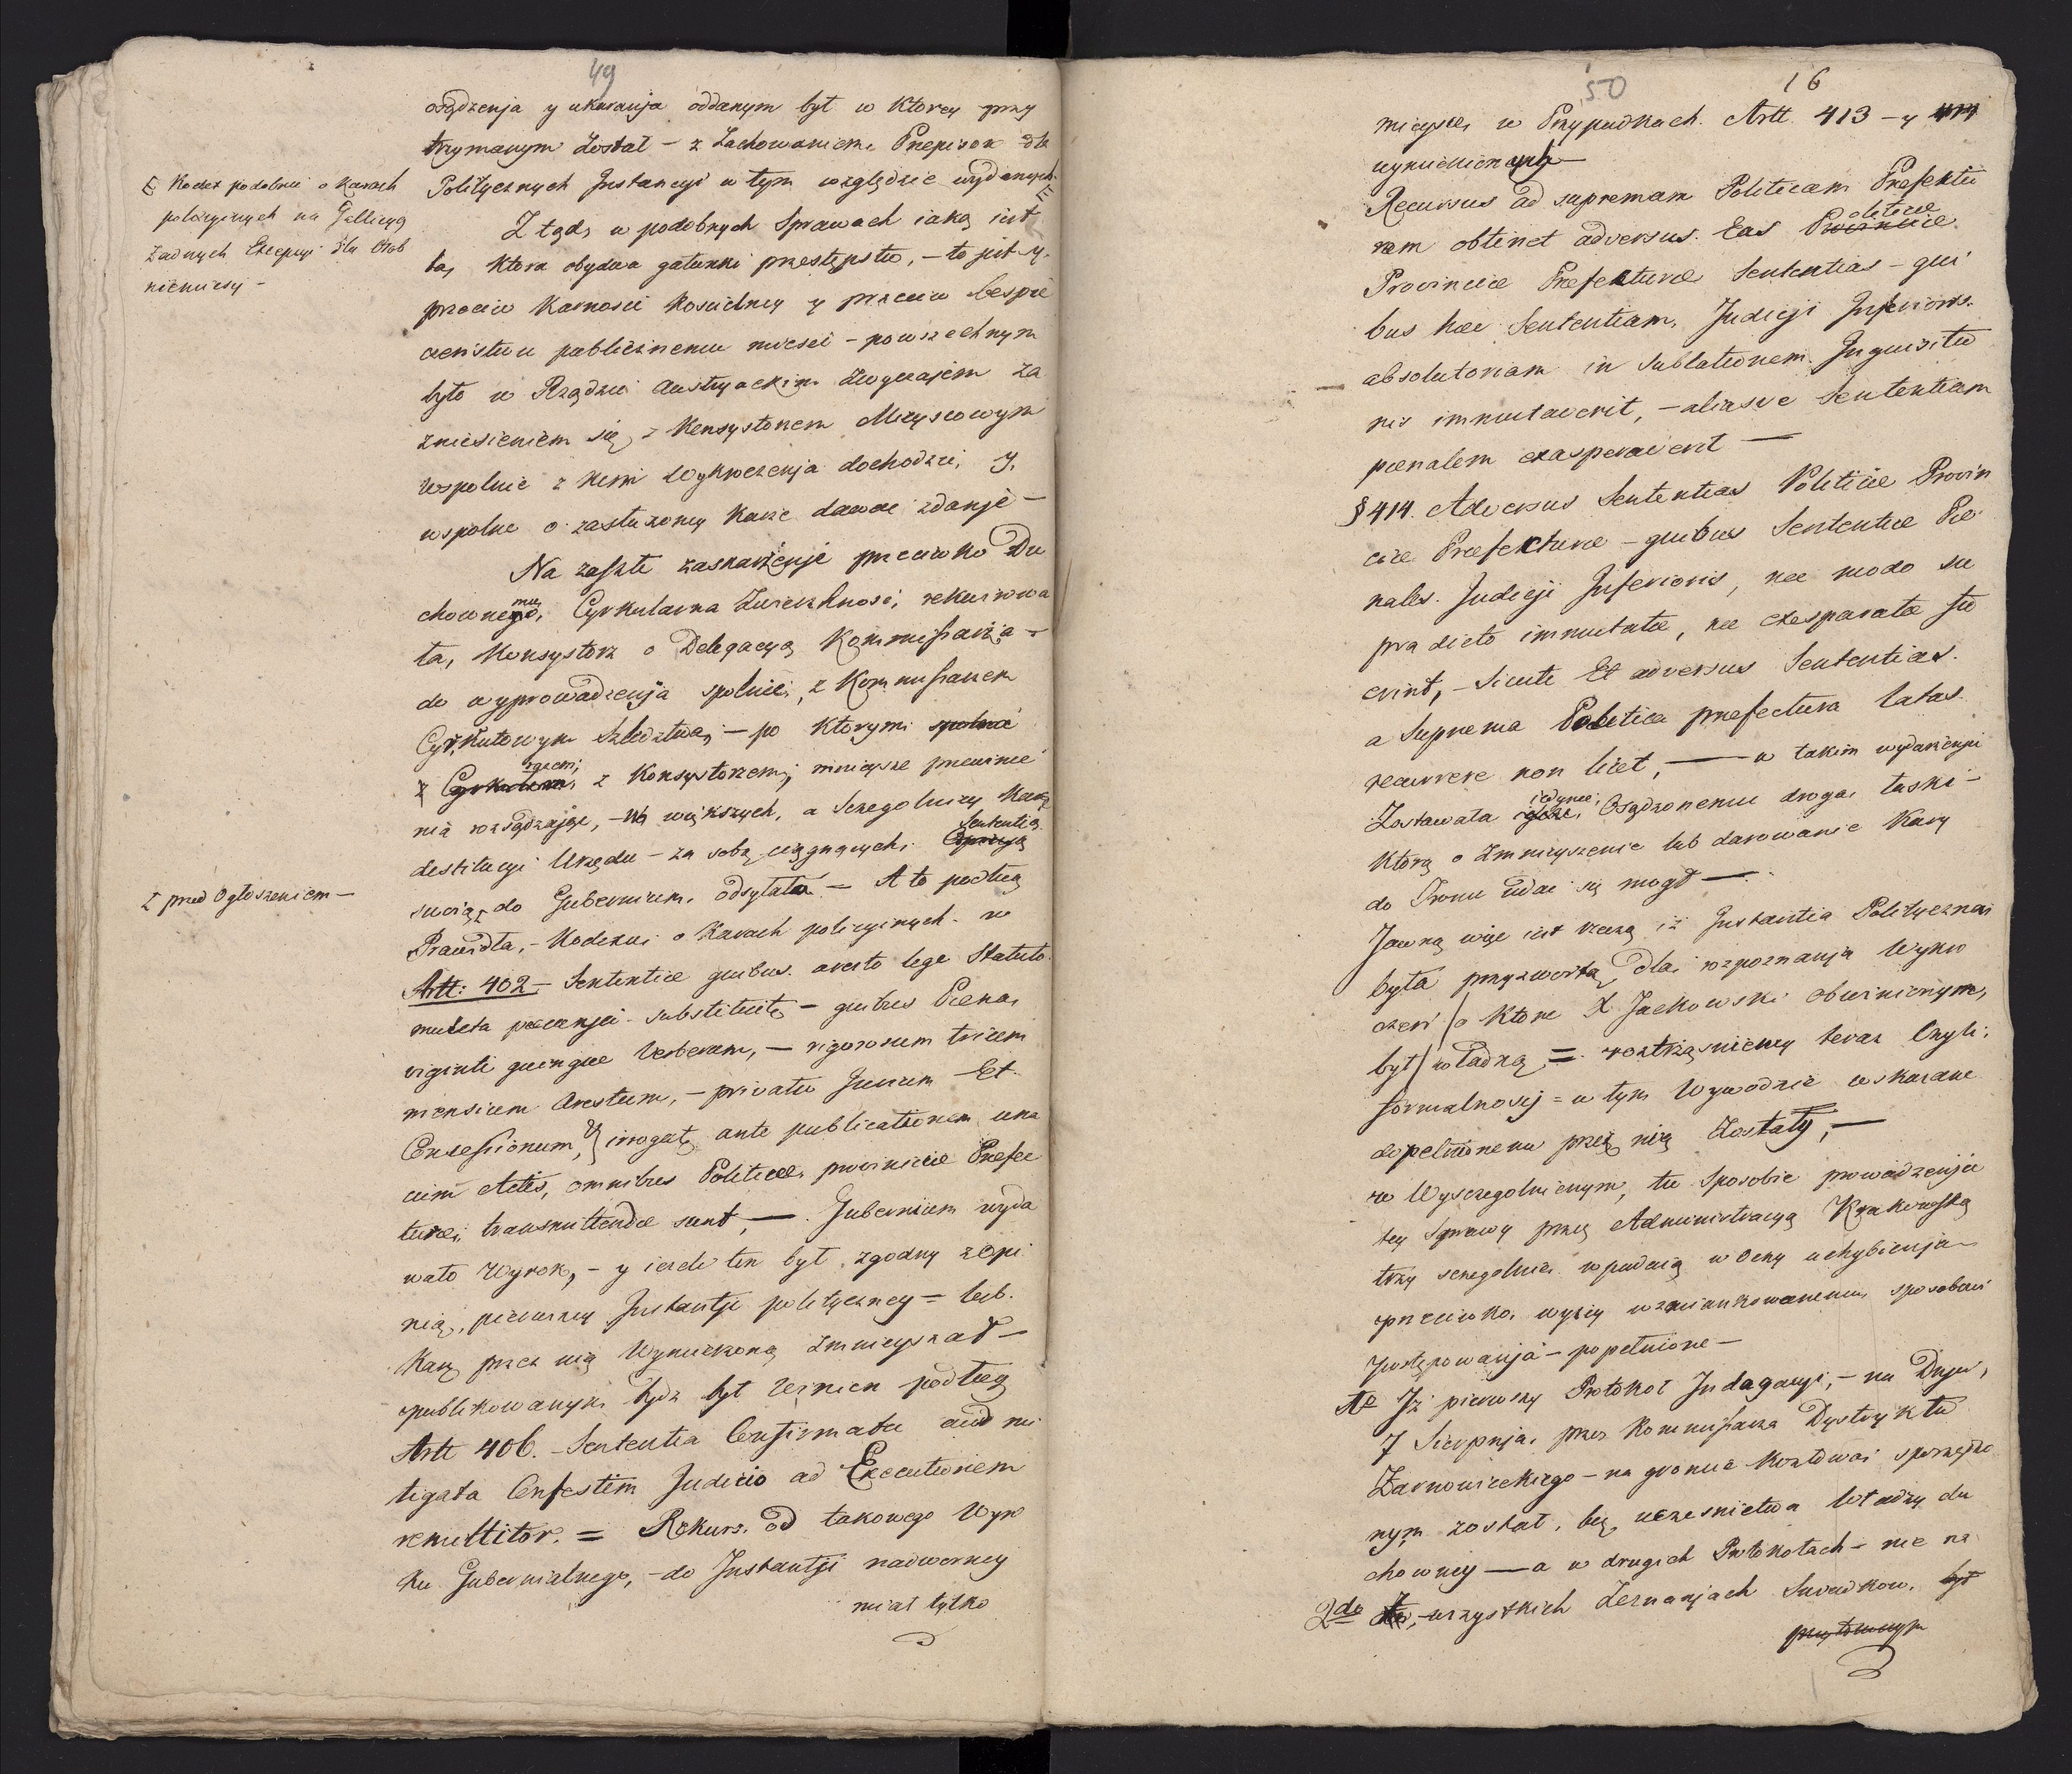 49
osądzenja y ukaranja oddanym był w ktorey przy
trzymanym został – z Zachowaniem Przepisow dla
Politycznych Instancyi w tym względzie wydanych.
Kodex podobnie o karach
policyinych na Gallicyą
żadnych Excepcyi dla Osob
nieniesy –
Z tąd, w podobnych Sprawach iaką iest
ta, ktora obydwa gatunki przestępstw, – to jest y
przeciw Karnosci Koscielney y przeciw bespie
czenstwu publicznemu miesci – powszechnym
było w Rządzie Austryackim Zwyczajem za
zniesieniem się z Konsystorzem Mieyscowym
wspolnie z nim Wykroczenja dochodzic, y
wspolne o zasłużoney karze dawac zdanje –
Na zaszłe zaskarżenje przeciwko Du
chownemu, Cyrkularna Zwierzchnosc, rekwirowa
ła, Konsystorz o Delegacyą Kommissarza –
do wyprowadzenja spolnie, z Kommissarzem
Cyrkułowym Sledztwa, – po ktorym spolnie
razem,
z Cyrkułem z Konsystorzem, mnieysze przewinie
nia rozsądzając, – W większych, a Szczegolniey Karę
destitucyi Urzędu – za sobą ciągnących, Sententią
swoią do Gubernium odsyłała – A to podług
Z przed Ogłoszeniem –
Prawidła, – Kodexu o Karach policyinych. w
Artt: 402 – Sententiae quibus aresto lege Statuto
mulcta substituitę – quibus Poena
viginti quinque Verberum, – rigorosum trium
mensium Arestum, – privatio Jurium Et
Concessionum, irrogatę ante publicationem una
cum Actis, omnibus Politicae provinciae Prefec
turae, transmittendae sunt, – . Gubernium wyda
wało Wyrok, – y iezeli ten był zgodny z Opi
nią, pierwszey Instantyi polityczney = lub
Karę przez nią Wymierzoną zmnieyszał –
publikowanym bydz był winien podług
Artt 406. – Sententia Confirmata aut mi
tigata Confestim Judicio ad Executionem
remittitor. = Rekurs od takowego Wyro
ku Gubernialnego, – do Instantyi nadworney
miał tylko
50
16
mieysce w Przypadkach Artt. 413 – y 414
wymienionych –
Recursus ad supremam Politicam Prefektu
ram obtinet adversus Eas Politicae
Provinciae Prefekturae Sententias – qui
bus haec Sententiam Judicji Inferioris
absolutoriam in Sublationem Inquisitio
nis immutaverit, – aliasve Sententiam
poenalem exasperaverit –
§ 414. Adversus Sententias Politicae Provin
ciae Praefecturae – quibus Sententiae Poe
nales Judicji Inferioris, nec modo su
pra dicto immutatae, nec exasparatae fu
erint, – Sicuti Et adversus Sententias
a Suprema Politica prefectura latas
recurrere non licet, – w takim wydarzenju
Zostawała iedynie, Osądzonemu droga łaski –
Ktorą o Zmnieyszenie lub darowanie Kary
do Tronu udac się mogł –
Jawną więc iest rzeczą iż Instantia Polityczna
była przyzwoitą dla rozpoznanja Wykro
czeń / o ktore X Jackowski obwinionym,
był / władzą = roztrząsniemy teraz Czyli
formalnosci = w tym Wywodzie wskazane
dopełnione przez nią Zostały, –
w Wyszczegolnionym, tu Sposobie prowadzenja
tey Sprawy przez Administracyą Krakowską
trzy szczegolnie wpadaią w Oczy uchybienja
przeciwko wyżey wzmiankowanemu sposobowi
postępowanja – popełnione –
1o Iż pierwszy Protokoł Indagacyi, – na Dniu
7 Sierpnja przez Kommissarza Dystryktu
Zarnowieckiego – na gruncie sporządzo
nym został, bez uczesnictwa Władzy du
chowney – a w drugich Protokołach – nie na
2do wszystkich Zeznanjach Swiadkow był
przytomnym